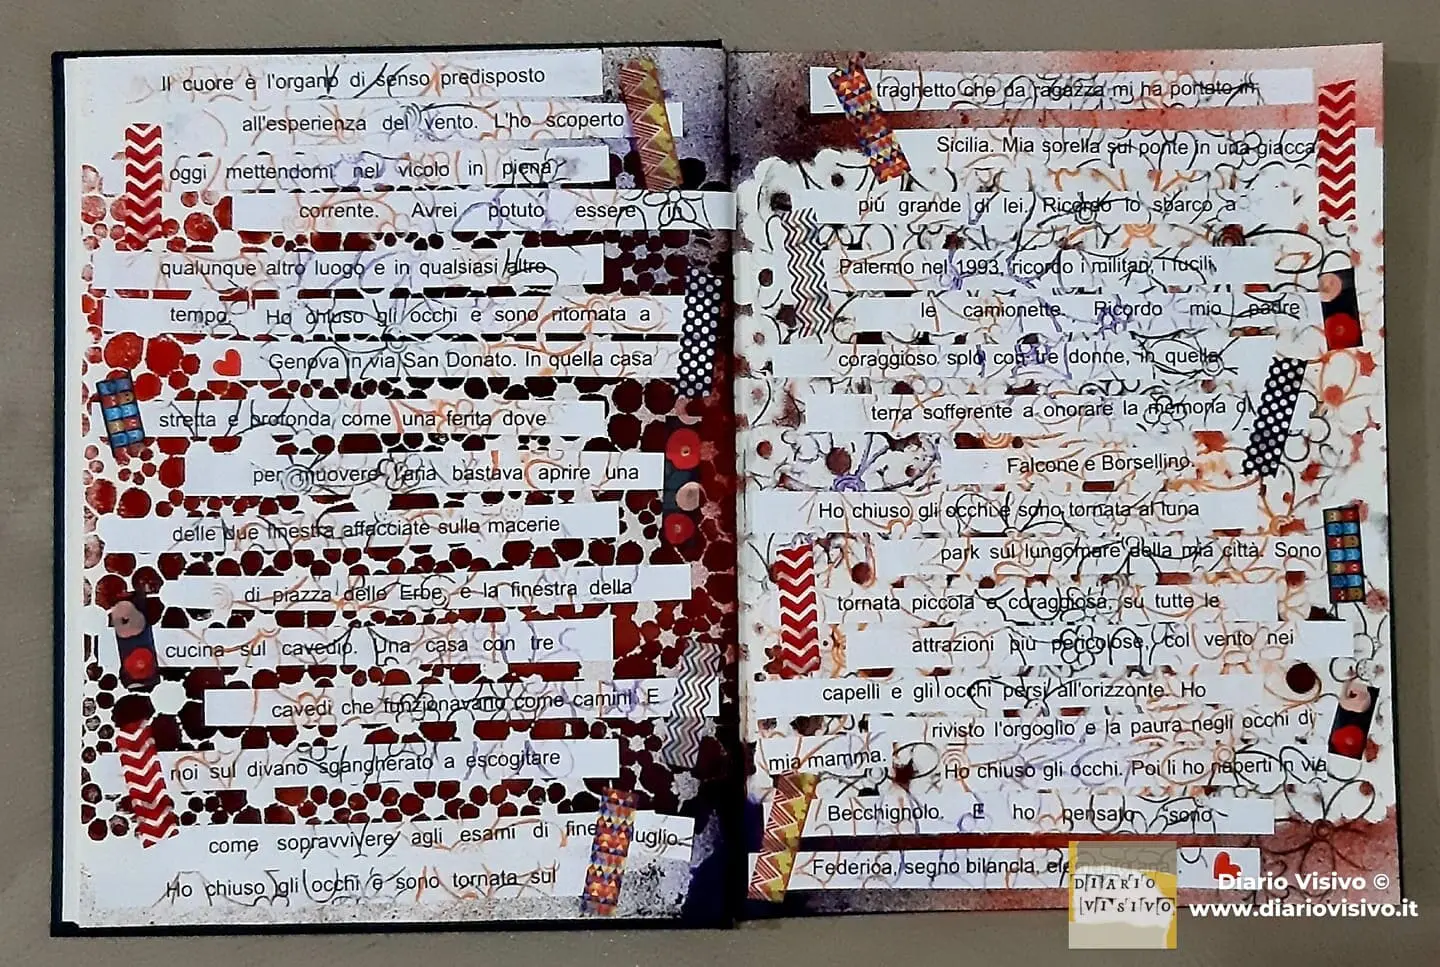 Il cuore è l'organo di senso predisposto
all'esperienza del vento. L'ho scoperto
oggi mettendomi nel vicolo in piena
corrente. Avrei potuto essere in
qualunque altro luogo e in qualsiasi altro
tempo. Ho chiuso gli occhi e sono ritornata a
Genova in via San Donato. In quella casa
stretta e profonda come una ferita dove
per muovere l'aria bastava aprire una
delle due finestra affacciate sulle macerie
di piazza delle Erbe, e la finestra della
cucina sul cavedio. Una casa con tre
cavedi che funzionavano come camini. E
noi sul divano sgangherato a escogitare
come sopravvivere agli esami di fine luglio.
Ho chiuso gli occhi e sono tornata sul
traghetto che da ragazza mi ha portato in
Sicilia. Mia sorella sul ponte in una giacca
più grande di lei. Ricordo lo sbarco a
Palermo nel 1993, ricordo i militari, i fucili,
le camionette. Ricordo mio padre
coraggioso solo con tre donne, in quella
terra sofferente a onorare la memoria di
Falcone e Borsellino.
Ho chiuso gli occhi e sono tornata al luna
park sul lungomare della mia città. Sono
tornata piccola e coraggiosa, su tutte le
attrazioni più pericolose, col vento nei
capelli e gli occhi persi all'orizzonte. Ho
rivisto l'orgoglio e la paura negli occhi di
mia mamma.
Ho chiuso gli occhi. Poi li ho riaperti in via
Becchignolo. E ho pensato sono
Federica, segno bilancia,
DIARIO
VISIVO
Diario Visivo ©
www.diariovisivo.it